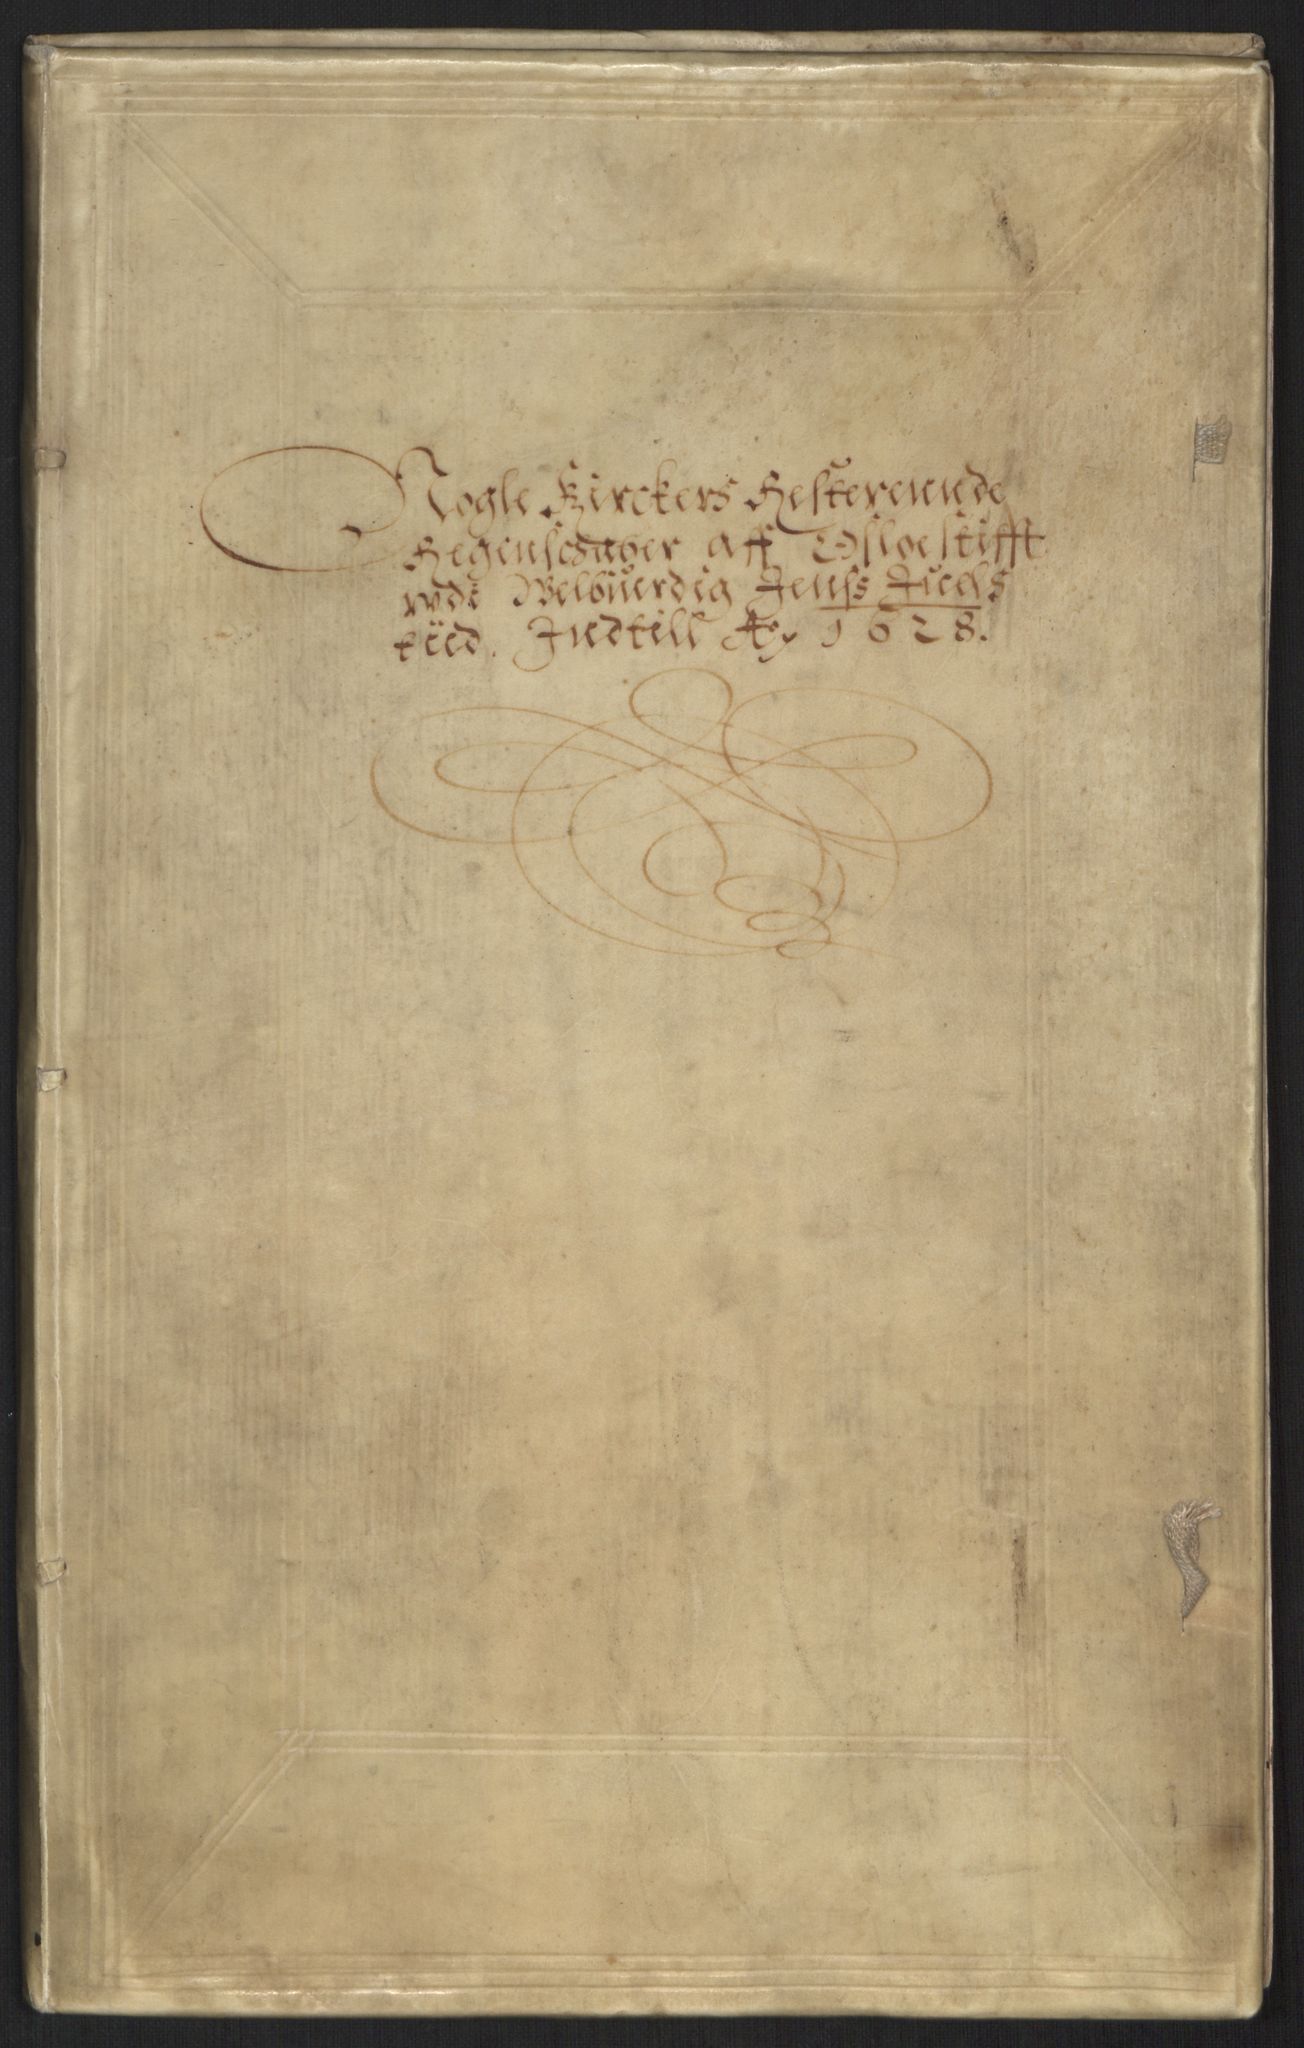 Nogle Kirckers Resterennde
Regenschaber aff Opsloestifft
wdi Welbiurdig Jenss Juels
tiid. Indtill Ao 1628.